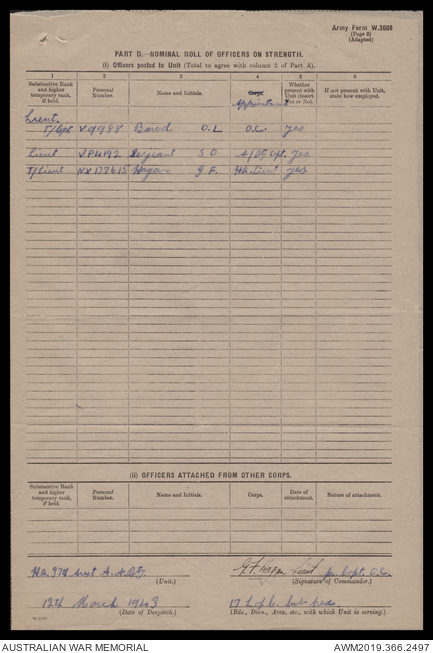 Army Form W.3008
(Page 2)
(Adapted)
PART D.—NOMINAL ROLL OF OFFICERS ON STRENGTH.
(i) Officers posted to Unit (Total to agree with column 2 of Part A).
1 2 3 4 5 6
Substantive Rank and higher temporary rank, if held.
Personal Number.
Name and Initials.
Corps.
Appointment
Whether present with Unit (insert Yes or No).
If not present with Unit, state how employed.
Lieut.
T/Capt V9988 O.L O.C. yes
Lieut VP4192 Serjeant S O A/Dt. Cpt. yes
T/Lieut NX137615 Hogan G F. HQ. Lieut yes
(ii) OFFICERS ATTACHED FROM OTHER CORPS.
Substantive Rank and higher temporary rank, if held.
Personal Number.
Name and Initials.
Corps.
Date of attachment.
Nature of attachment.
HQ. 374 Aust A.A.
(Unit.)
Lieut for Capt. O.C.
(Signature of Commander.)
124 March 1943
(Date of Despatch.)
17
(Bde., Divn., Area, etc., with which Unit is serving.)
AUSTRALIAN WAR MEMORIAL
AWM2019.366.2497